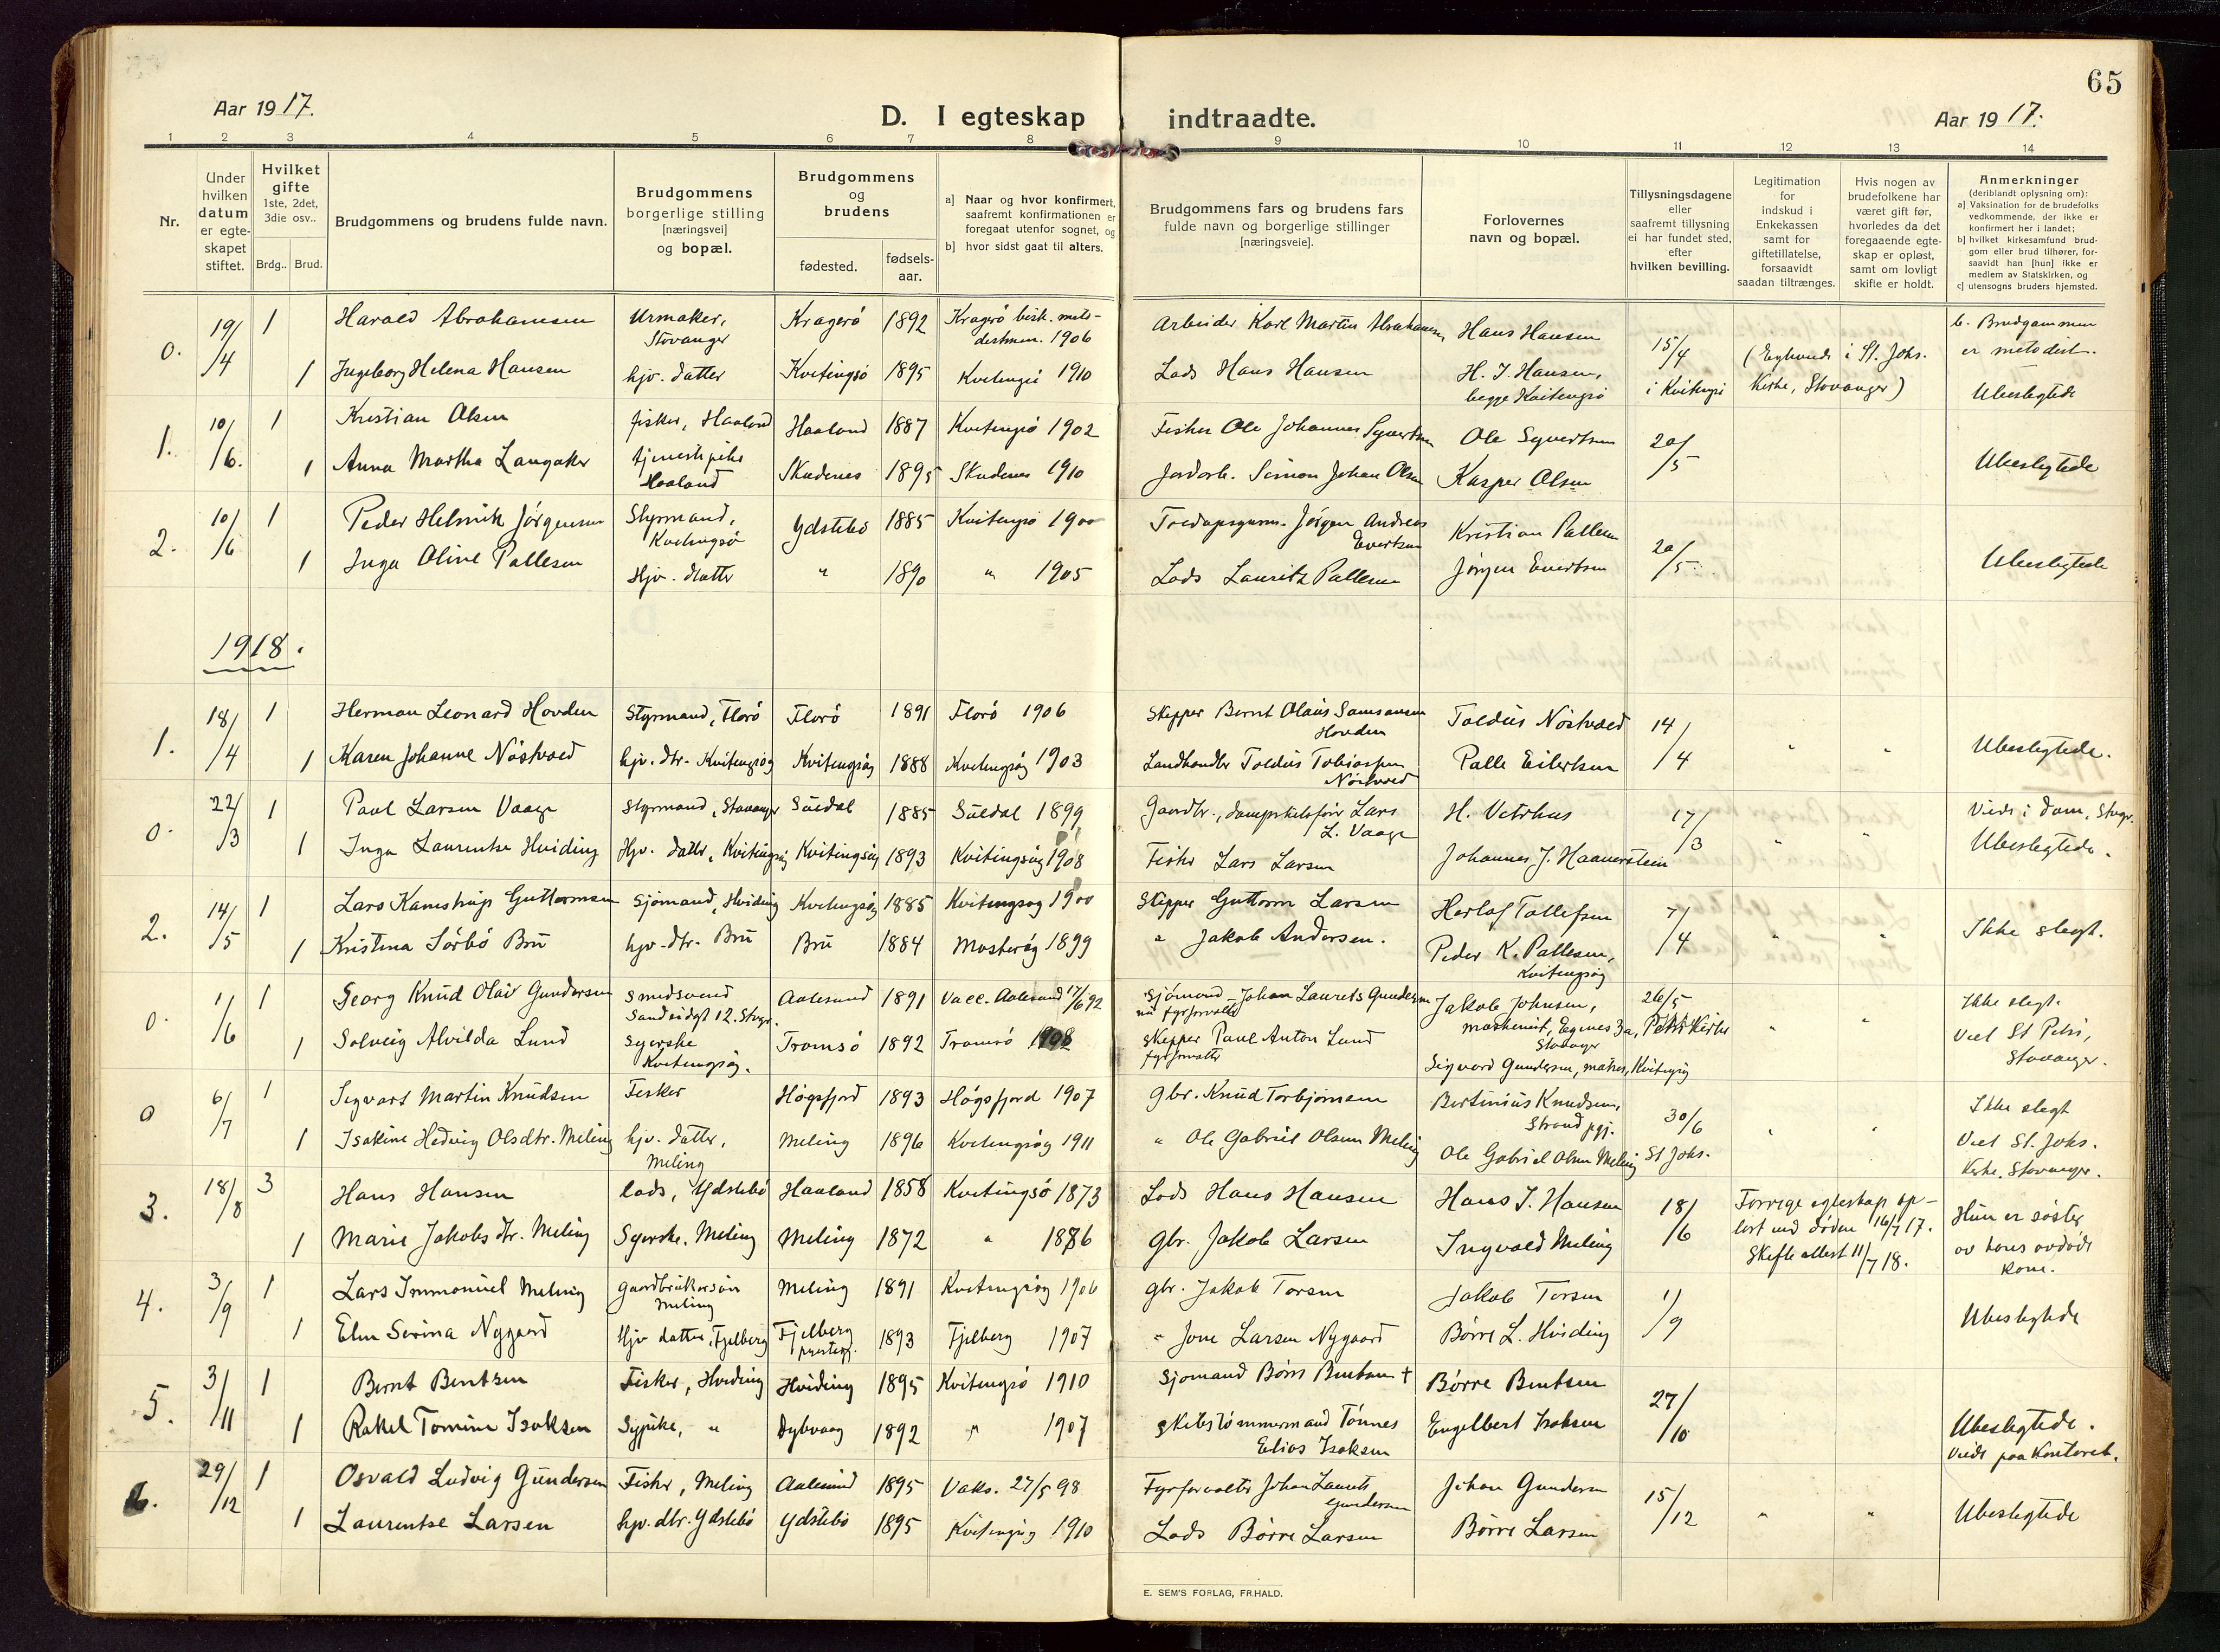 65
Aar 1917.
D. I egteskap indtraadte.
Aar 1917.
1 2 3 4 5 6 7 8 9 10 11 12 13 14
Nr.
Under
hvilken
datum
er egte-
skapet
stiftet.
Hvilket
gifte
1ste, 2det,
3die osv..
Brdg.. Brud.
Brudgommens og brudens fulde navn.
Brudgommens
borgerlige stilling
[næringsvei]
og bopæl.
Brudgommens
og
brudens
fødested.
fødsels-
aar.
a] Naar og hvor konfirmert,
saafremt konfirmationen er
foregaat utenfor sognet, og
b] hvor sidst gaat til alters.
Brudgommens fars og brudens fars
fulde navn og borgerlige stillinger
[næringsveie].
Forlovernes
navn og bopæl.
Tillysningsdagene
eller
saafremt tillysning
ei har fundet sted,
efter
hvilken bevilling.
Legitimation
for
indskud i
Enkekassen
samt for
giftetillatelse,
forsaavidt
saadan tiltrænges.
Hvis nogen av
brudefolkene har
været gift før,
hvorledes da det
foregaaende egte-
skap er opløst,
samt om lovligt
skifte er holdt.
Anmerkninger
(deriblandt oplysning om):
a] Vaksination for de brudefolks
vedkommende, der ikke er
konfirmert her i landet;
b] hvilket kirkesamfund brud-
gom eller brud tilhører, for-
saavidt han [hun] ikke er
medlem av Statskirken, og
c] utensogns bruders hjemsted.
0. 19/4 1 Harald Abrahamsen Urmaker, Stavanger Kragerö 1892 Kragerö 1906 Arbeider Karl Martin Abrahamsen Hans Hansen 15/4 (Egtevudi i St. Johs. b. Brudgommen er metodist.
1 Ingeborg Helena Hansen hjv. datter Kvitingsö 1895 Kvitingsö 1910 Lods Hans Hansen H. J. Hansen, begge Kvitingsö i Kvitingsö Kirke, Stavanger) Ubeslegtede
1. 10/6. 1 Kristian Olsen fisker, Haaland Haaland 1887 Kvitingsö 1902 Fisker Ole Johannes Syvertsen Ole Syvertsen 20/5
1 Anna Martha Langaker tjenestepike Haaland Skudenes 1895 Skudenes 1910 Jordarb. Simon Johan Olsen Kasper Olsen Ubeslegtede
2. 10/6 1 Peder Helmik Jörgensen Styrmand, Kvitingsö Ydstebö 1885 Kvitingsö 1900 Jörgen Andreas Evertsen Kristian Pallesen 20/5
1 Inga Oline Pallesen Hjv. datter " 1890 " 1905 Lods Lauritz Pallesen Jörgen Evertsen Ubeslegtede
1918.
1. 18/4 1 Herman Leonard Hovden Styrmand, Florö Florö 1891 Florö 1906 Skipper Bernt Olaus Samsonsen Hovden Toldus Nöstvold 14/4
1 Karen Johanne Nöstvold hjv. dtr. Kvitingsöy Kvitingsöy 1888 Kvitingsöy 1903 Landhandler Toldus Tobiassen Nöstvold Palle Eilertsen " " Ubeslegtede.
0. 22/3 1 Paul Larsen Vaage Styrmand, Stavanger Suldal 1885 Suldal 1899 Gaardbr., dampskibsförer Lars L. Vaage H. Vetrhus 17/3 Viede i dom, Stvgr.
1 Inga Laurentse Hviding Hjv. datter, Kvitingsöy Kvitingsöy 1893 Kvitingsöy 1908 Fisker Lars Larsen Johannes J. Haaverstein " " Ubeslegtede.
2. 14/5 1 Lars Kamstrup Guttormsen Sjömand, Hviding Kvitingsöy 1885 Kvitingsöy 1900 Skipper Guttorm Larsen Herlof Tollefsen 7/4
1 Kristina Sörbö Bru hjv. dtr. Bru Bru 1884 Mosteröy 1899 " Jakob Andersen. Peder K. Pallesen, Kvitingsöy " " Ikke slegt.
0. 1/6 1 Georg Knud Olav Gundersen Smedsvend Sandeidgt 12. Stvgr. Aalesund 1891 Vacc. Aalesund 17/6 92 Sjömand Johan Laurets Gundersen nu fyrforvalter Jakob Johnsen, maskinist, Egenes 3a, Stavanger 26/5 Petri Kirke Ikke slegt.
1 Solveig Alvilda Lund Syerske Kvitingsöy. Tromsö 1892 Tromsö 1908 Skipper Paul Anton Lund fyrforvalter Sigvard Gundersen, matros, Kvitingsöy " " Viet St Petri, Stavanger.
0 6/7 1 Sigvart Martin Knudsen Fisker Högsfjord 1893 Högsfjord 1907 gbr. Knud Torbjörnsen Bertinius Knudsen, Strand pgj. 30/6 Ikke slegt
1 Isakine Hedvig Olsdtr. Meling hjv. datter, Meling Meling 1896 Kvitingsöy 1911 " Ole Gabriel Olsen Meling Ole Gabriel Olsen Meling St Johs. " " Viet St. Johs. Kirke, Stavanger.
3. 18/8 3 Hans Hansen lods, Ydstebö Haaland 1858 Kvitingsö 1873 Lods Hans Hansen Hans J. Hansen 18/6 Forrige egteskap op- löst ved döden 16/7 17. Skifteattest 11/7 18.
1 Marie Jakobsdtr. Meling Syerske, Meling Meling 1872 " 1886 gbr. Jakob Larsen Ingvald Meling Hun er söster av hans avdöde kone.
4. 3/9 1 Lars Immanuel Meling Gaardbrukersön Meling Meling 1891 Kvitingsöy 1906 gbr. Jakob Torsen Jakob Torsen 1/9
1 Elen Serina Nygaard Hjv datter, Fjelberg Fjelberg prestegj. 1893 Fjelberg 1907 " Jone Larsen Nygaard Børre L. Hviding Ubeslegtede
5. 3/11 1 Bernt Bentsen Fisker, Hviding Hviding 1895 Kvitingsö 1910 Sjömand Börre Bentsen † Børre Bentsen 27/10
1 Rakel Tomine Isaksen Sypike, " Dybvaag 1892 " 1907 Skibstömmermand Tönnes Elias Isaksen Engelbert Isaksen Ubeslegtede. Viede paa Kontoret.
6. 29/12 1 Osvald Ludvig Gundersen Fisker, Meling Aalesund 1895 Vaks. 27/5 98 Fyrforvalter Johan Laurets Gundersen Johan Gundersen 15/12
1 Laurentse Larsen hjv. dtr. Ydstebö Ydstebö 1895 Kvitingsöy 1910 Lods Börre Larsen Börre Larsen " " Ubeslegtede
E. SEM'S FORLAG, FR.HALD.